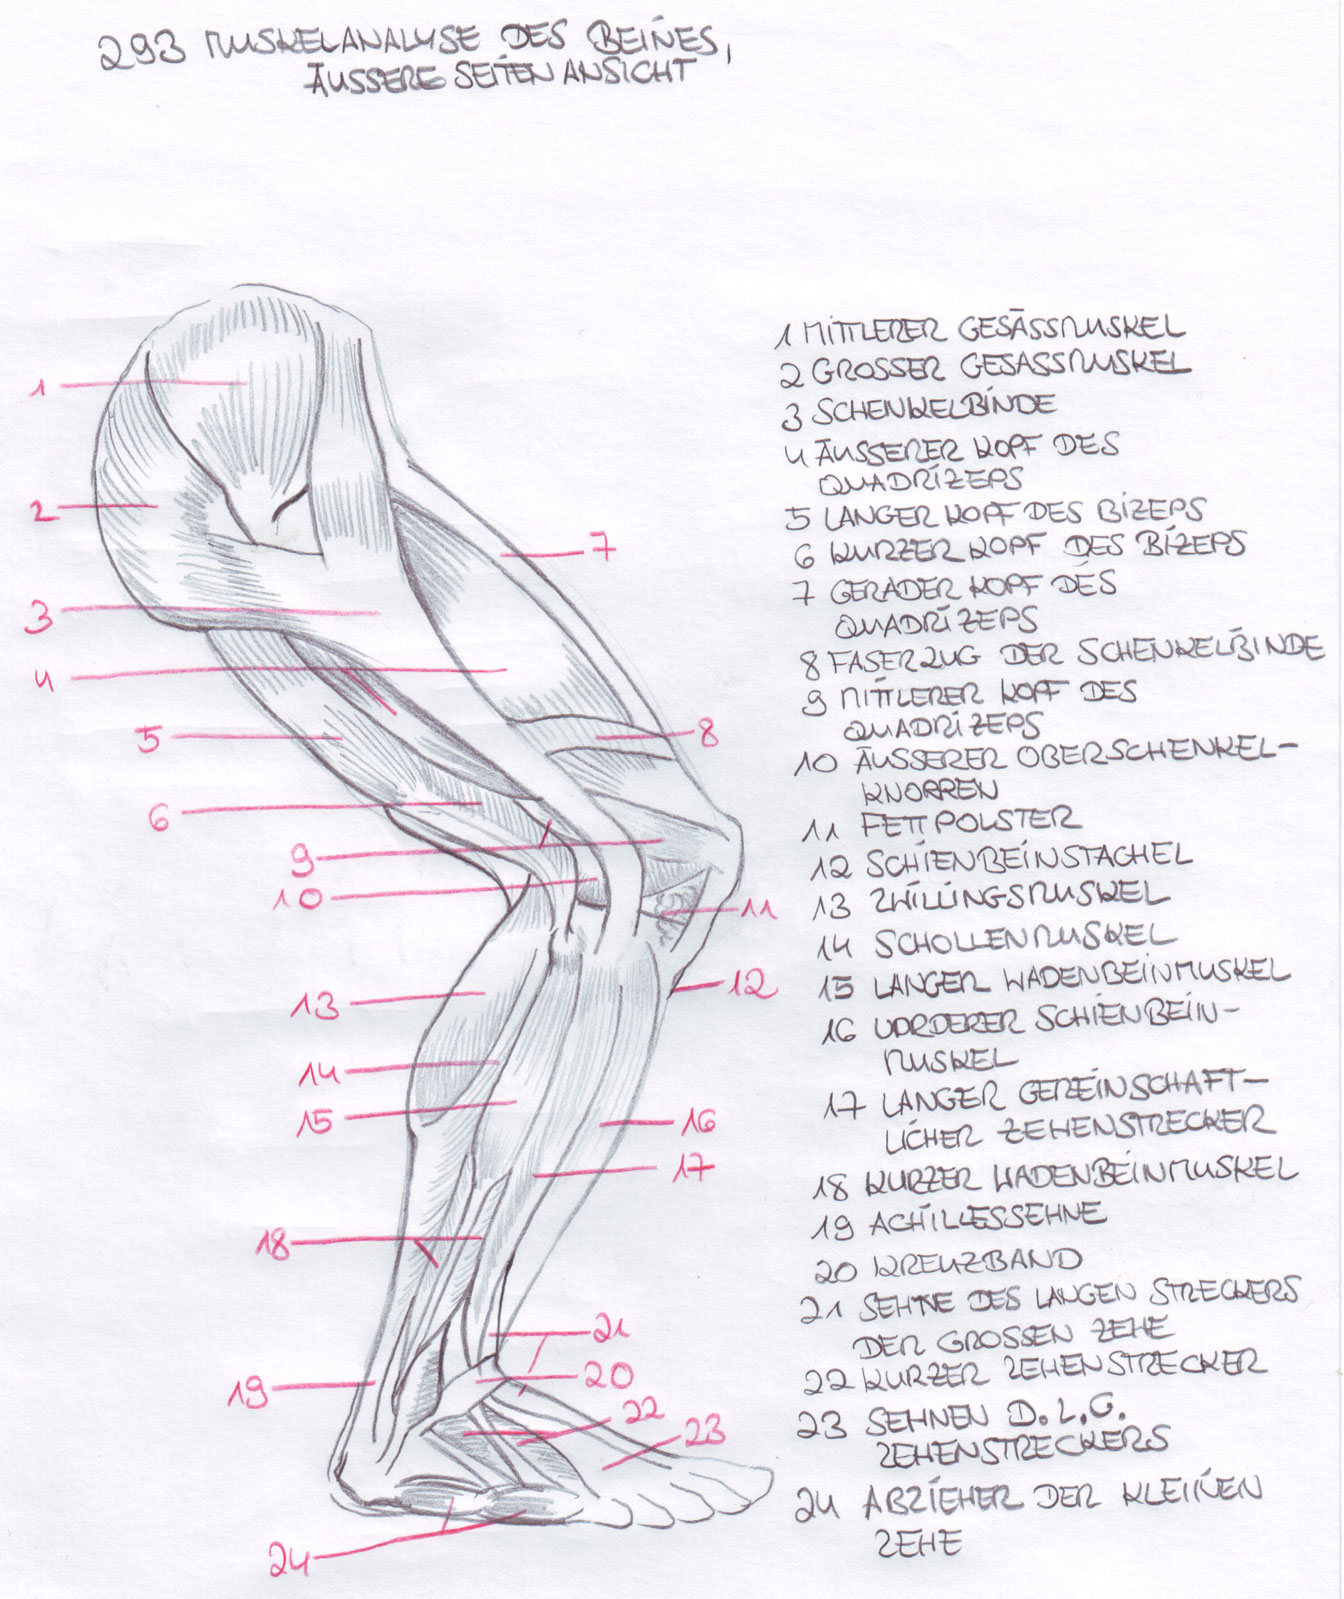 293 MUSKELANALYSE DES BEINES,
ÄUSSERE SEITENANSICHT
1 MITTLERER GESÄSSMUSKEL
2 GROSSER GESASSMUSKEL
3 SCHENKELBINDE
4 ÄUSSERER KOPF DES
QUADRIZEPS
5 LANGER KOPF DES BIZEPS
6 KURZER KOPF DES BIZEPS
7 GERADER KOPF DES
QUADRIZEPS
8 FASERZUG DER SCHENKELBINDE
9 MITTLERER KOPF DES
QUADRIZEPS
10 ÄUSSERER OBERSCHENKEL-
KNORREN
11 FETTPOLSTER
12 SCHIENBEINSTACHEL
13 ZWILLINGSMUSKEL
14 SCHOLLENMUSKEL
15 LANGER WADENBEINMUSKEL
16 VORDERER SCHIENBEIN-
MUSKEL
17 LANGER GEMEINSCHAFT-
LICHER ZEHENSTRECKER
18 KURZER WADENBEINMUSKEL
19 ACHILLESSEHNE
20 KREUZBAND
21 SEHNE DES LANGEN STRECKERS
DER GROSSEN ZEHE
22 KURZER ZEHENSTRECKER
23 SEHNEN D. L. G.
ZEHENSTRECKERS
24 ABZIEHER DER KLEINEN
ZEHE
1
2
7
3
4
5
8
6
9
10
11
12
13
14
15
16
17
18
21
20
19
22
23
24